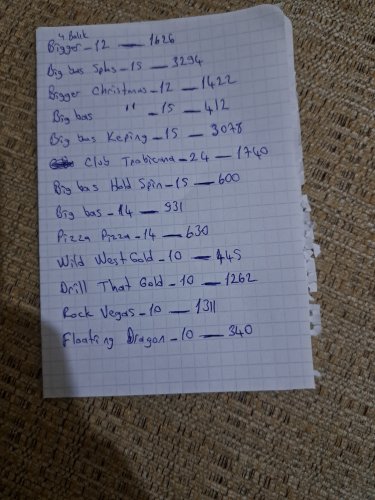 4. Balık
Bigger - 12 — 1626
Big bas Splas - 15 — 3294
Bigger Christmas - 12 — 1422
Big bas " - 15 — 412
Big bas Keping - 15 — 3078
Club Trobicana - 24 — 1740
Big bas Hold Spin - 15 — 600
Big bas - 14 — 931
Pizza Pizza - 14 — 630
Wild West Gold - 10 — 445
Drill That Gold - 10 — 1262
Rock Vegas - 10 — 1311
Floating Dragon - 10 — 340